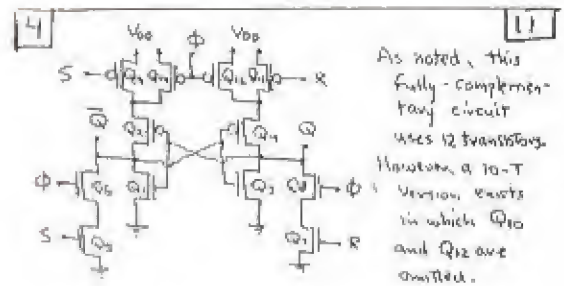 4
11
V_DD φ V_DD
S Q9 Q10 Q12 Q11 R
Q̅ Q2 Q4 Q
φ Q6 Q1 Q3 Q8 φ
S Q5 Q7 R
As noted, this
fully-complemen-
tary circuit
uses 12 transistors.
However, a 10-T
version exists
in which Q10
and Q12 are
omitted.